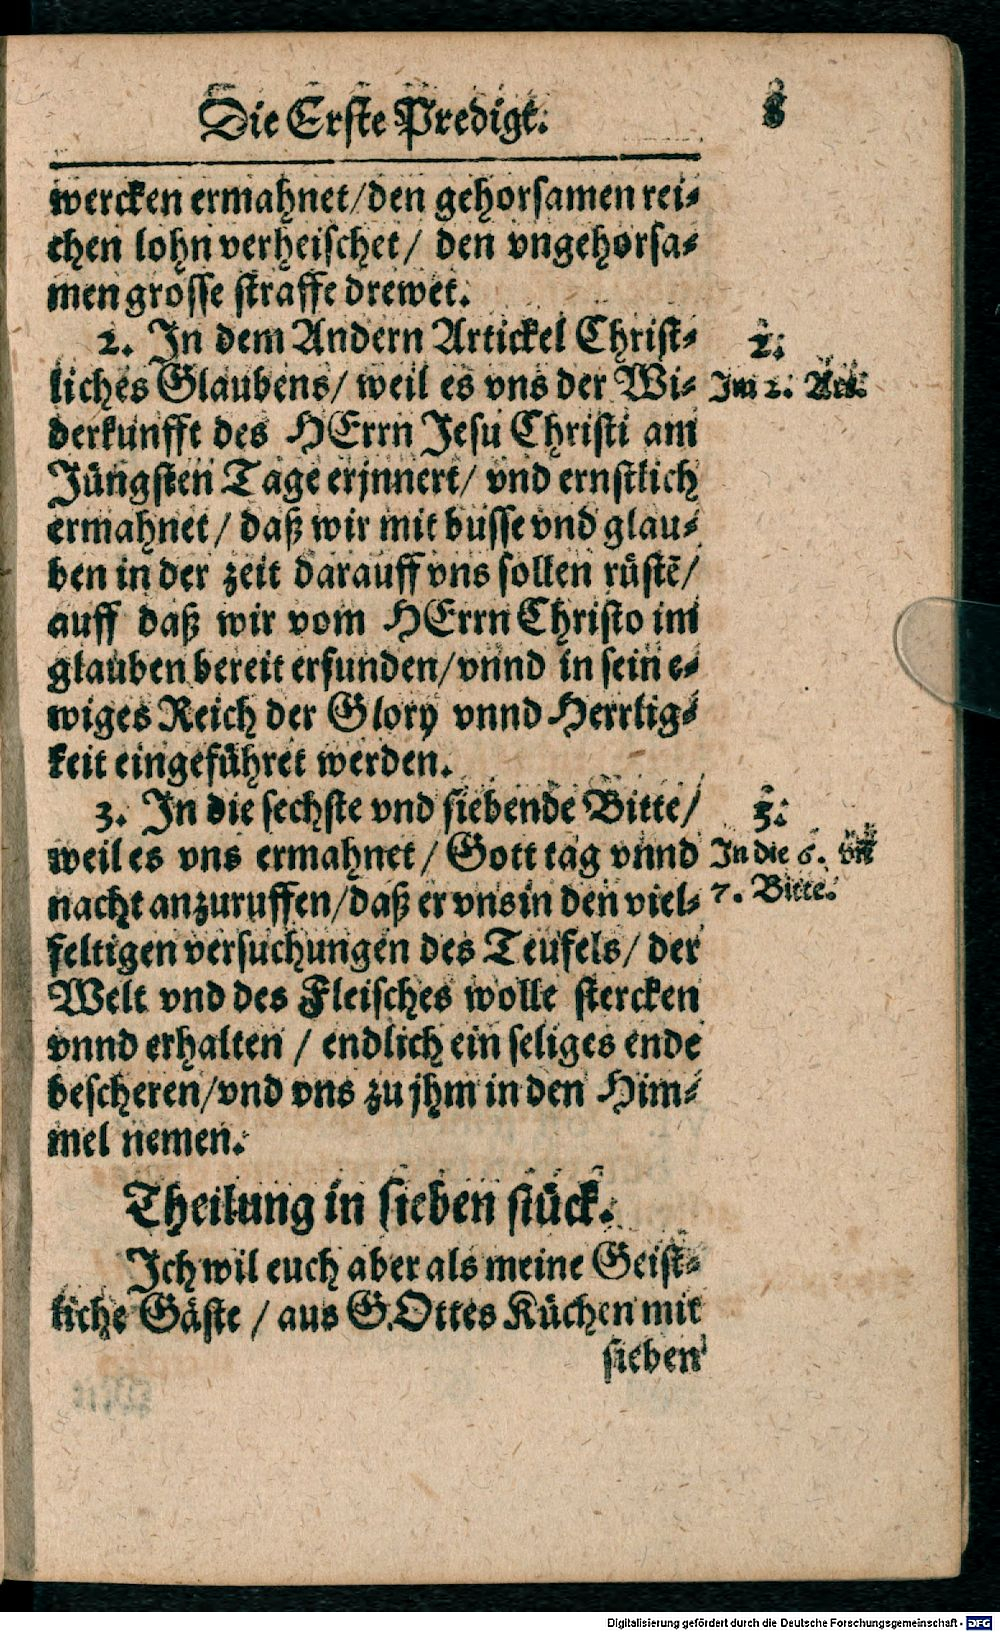 Die Erste Predigt. 8
wercken ermahnet/den gehorsamen rei-
chen lohn verheischet/ den vngehorsa-
men grosse straffe drewet.
2. In dem Andern Artickel Christ-
liches Glaubens/ weil es vns der Wi-
derkunfft des HErrn Jesu Christi am
Jüngsten Tage erjnnert/ vnd ernstlich
ermahnet/ daß wir mit busse vnd glau-
ben in der zeit darauff vns sollen rüstē/
auff daß wir vom HErrn Christo im
glauben bereit erfunden/vnnd in sein e-
wiges Reich der Glory vnnd Herrlig-
keit eingeführet werden.
3. In die sechste vnd siebende Bitte/
weil es vns ermahnet/ Gott tag vnnd
nacht anzuruffen/daß er vns in den viel-
feltigen versuchungen des Teufels/ der
Welt vnd des Fleisches wolle stercken
vnnd erhalten / endlich ein seliges ende
bescheren/vnd vns zu jhm in den Him-
mel nemen.
Theilung in sieben stück.
Ich wil euch aber als meine Geist-
liche Gäste / aus GOttes Küchen mit
sieben
2.
Im 2. Art.
3.
In die 6. vñ
7. Bitte.
Digitalisierung gefördert durch die Deutsche Forschungsgemeinschaft - DFG